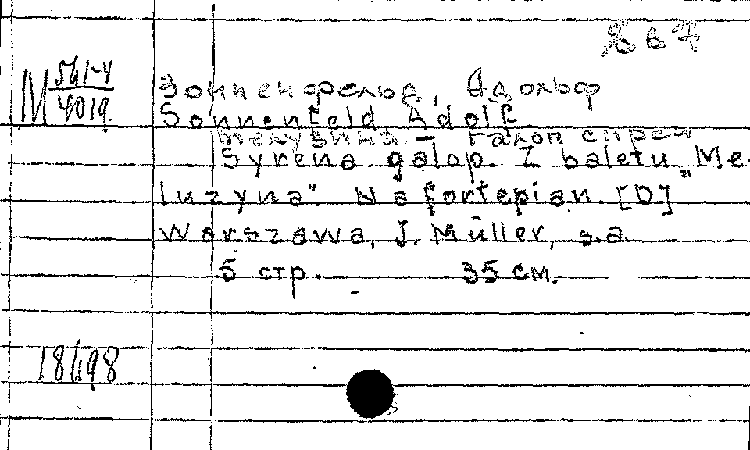 867
М 561-4
4019.
Зонненфельд, Адольф
Sonnenfeld Adolf
Мелузина – Галоп сирен
Syrena galop. Z baletu „Me-
luzyna". Na fortepian. [D]
Warszawa, J. Müller, s.a.
5 стр. 35 см.